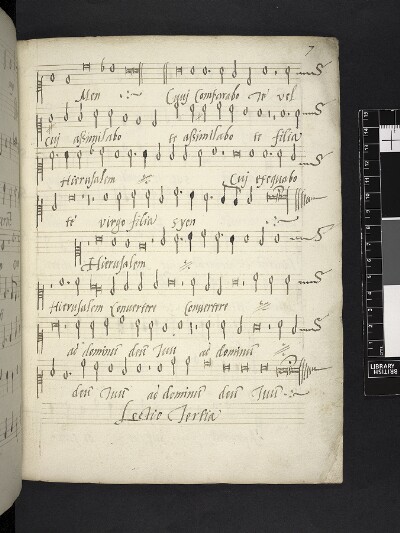 7
Men Cuj Comparabo Te vel
Cuj assimilabo te assimilabo te filia
Hierusalem Cuj exequabo
te virgo filia syon
Hierusalem
Hierusalem Convertere Convertere
ad dominū deū Tuū ad dominū
deū Tuū ad dominū deū Tuū
Lectio Tertia
LIBRARY
BRITISH